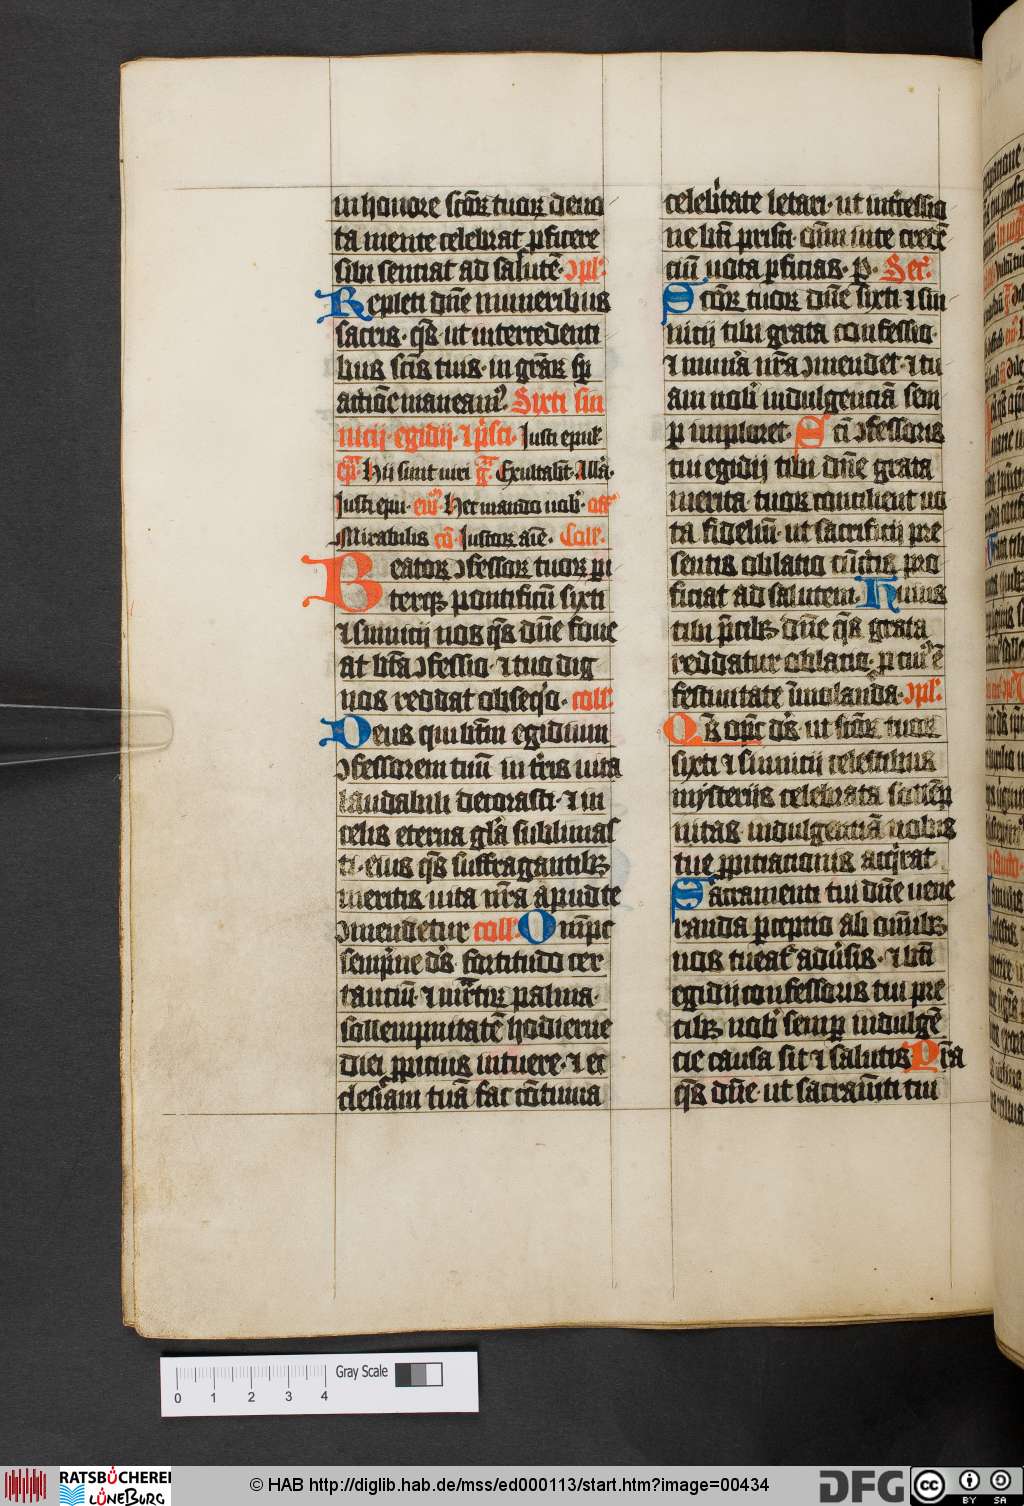 in honore scōꝝ tuoꝝ deuo
ta mente celebrat ꝑficere
sibi senciat ad salutē· ꝯpl'
Repleti dn̄e muneribus
sacris· qs̄· ut intercedenti
bus scīs tuis· in grāꝝ sꝑ
actiōe maneam⁹· Sixti sin
nicij· egidij· ⁊ pͥsci· Iusti epul'
ep̄la Hii sunt uiri g̃· Exultabūt· Allā·
Iusti epu· ew̄· Hec mando uob'· off'
Mirabilis cō· Iustoꝝ aīe· Coll'·
Beatoꝝ ꝯfessoꝝ tuoꝝ pͥ
terqꝫ pontificū sixti
⁊ sinnicij nos qs̄ dn̄e foue
at bt̄a ꝯfessio· ⁊ tuo dig
nos reddat obseqͥo· coll'
Deus qui bt̄m egidium
ꝯfessorem tuū in tͥris uita
laudabili decorasti· ⁊ in
celis eterna glā sublimas
ti· eius qs̄ suffragantibꝫ
meritis uita nr̄a apud te
ꝯmendetur coll' Omp̄c
sempͥne ds̄· fortitudo cer
tanciū· ⁊ mr̄tiꝝ palma·
sollempnitatē hodierne
diei ꝓpicius intuere· ⁊ ec
clesiam tuā fac cōtinua
celebͥtate letari· ut intͥcessio
ne bt̄i prisci· om̄m in te credē
ciū uota ꝑficias· ꝑ· Secͬ·
Scōꝝ tuoꝝ dn̄e sixti ⁊ sin
nicij tibi grata confessio·
⁊ munͥa nr̄a ꝯmendet· ⁊ tu
am nob' indulgenciā sem
ꝑ imploret· Scī ꝯfessoris
tui egidij tibi dn̄e grata
merita· tuoꝝ concilient uo
ta fideliū· ut sacrificij pre
sentis oblatio cūctis pro
ficiat ad salutem· Huius
tibi pͥcibꝫ dn̄e qs̄ grata
reddatur oblatio· ꝑ cuiꝰ ē
festiuitate īmolanda· ꝯpl'
Qs̄ omp̄c ds̄· ut scōꝝ tuoꝝ
sixti ⁊ sinnicij celestibus
mysteriis celebrata sollēp
nitas indulgentiā nobis
tue ꝓpiciacionis acqͥrat
Sacramenti tui dn̄e uene
randa ꝑceptio ab om̄ibꝫ
nos tueat' aduͥsis· ⁊ bt̄i
egidij confessoris tui pre
cibꝫ nob' semꝑ indulgē
cie causa sit ⁊ salutis Pn̄ta
qs̄ dn̄e· ut sacramn̄ti tui
0 1 2 3 4
Gray Scale
RATSBÜCHEREI
LÜNEBURG
© HAB http://diglib.hab.de/mss/ed000113/start.htm?image=00434
DFG
cc BY SA